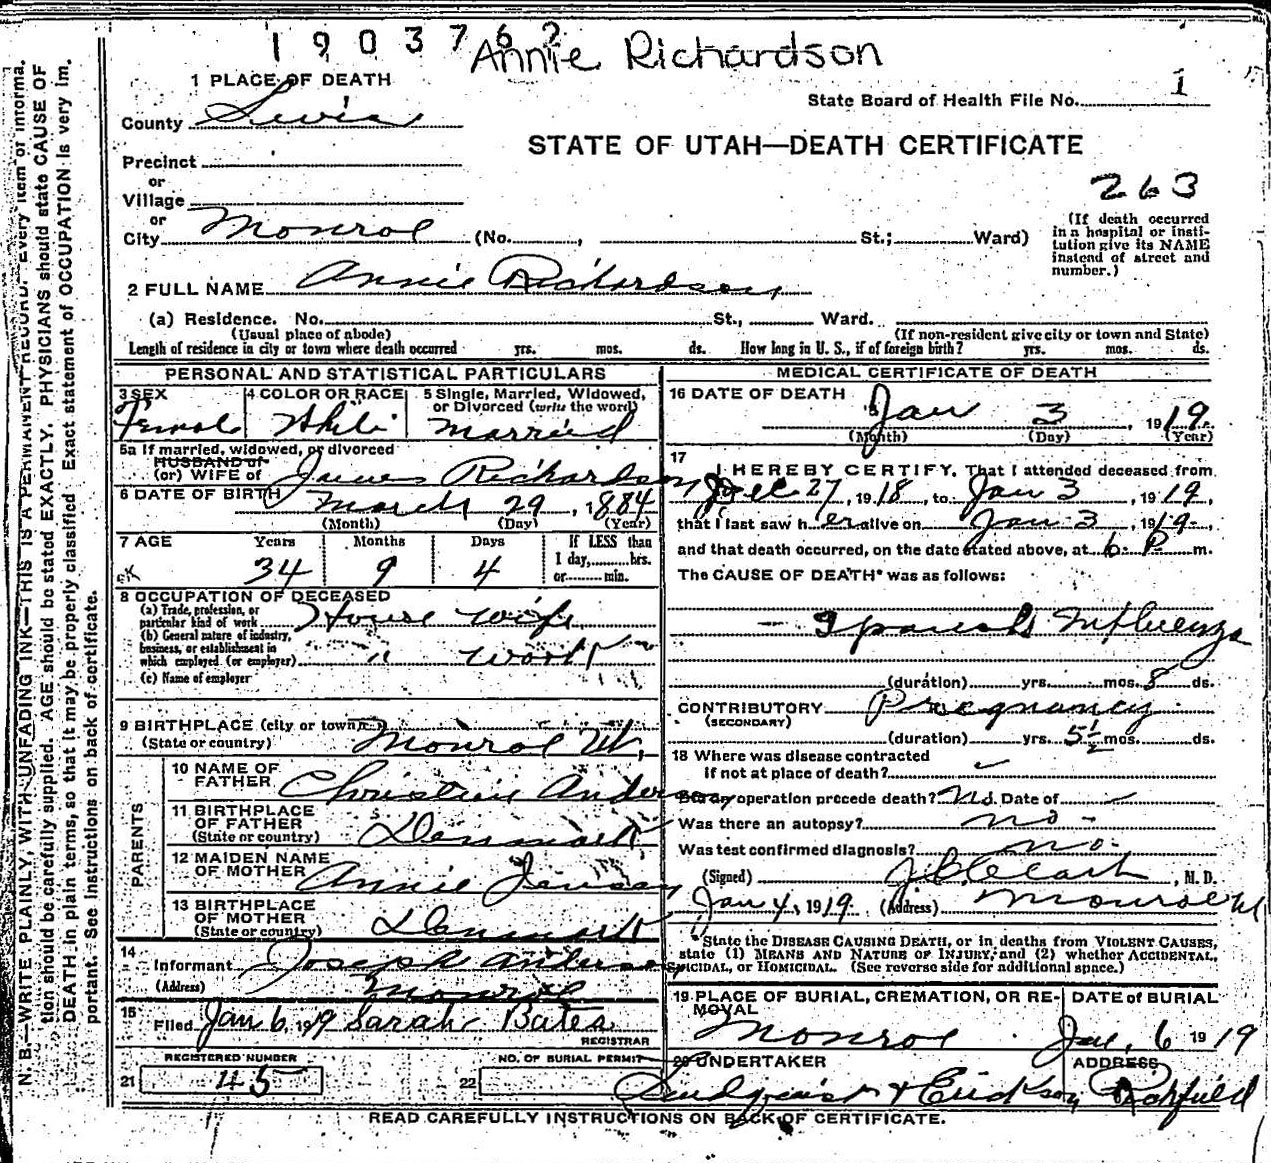 1903762
Annie Richardson
1 PLACE OF DEATH
State Board of Health File No. 1
County Sevier
STATE OF UTAH—DEATH CERTIFICATE
Precinct
or
Village
263
or
City Monroe (No. , St.; Ward)
(If death occurred in a hospital or institution give its NAME instead of street and number.)
2 FULL NAME Annie Richardson
(a) Residence. No. St., Ward.
(Usual place of abode) (If non-resident give city or town and State)
Length of residence in city or town where death occurred yrs. mos. ds. How long in U. S., if of foreign birth? yrs. mos. ds.
PERSONAL AND STATISTICAL PARTICULARS
3 SEX Female
4 COLOR OR RACE White
5 Single, Married, Widowed, or Divorced (write the word) Married
5a If married, widowed, or divorced
HUSBAND of
(or) WIFE of James Richardson
6 DATE OF BIRTH March 29, 1884
(Month) (Day) (Year)
7 AGE Years Months Days If LESS than
34 9 4 1 day, hrs.
or min.
8 OCCUPATION OF DECEASED
(a) Trade, profession, or
particular kind of work House wife
(b) General nature of industry,
business, or establishment in
which employed (or employer) " work
(c) Name of employer
9 BIRTHPLACE (city or town)
(State or country) Monroe Ut,
PARENTS
10 NAME OF
FATHER Christine Anderson
11 BIRTHPLACE
OF FATHER
(State or country) Denmark
12 MAIDEN NAME
OF MOTHER Annie Jensen
13 BIRTHPLACE
OF MOTHER
(State or country) Denmark
14
Informant Joseph Anderson
(Address) Monroe
15
Filed Jan 6, 1919 Sarah Bates
REGISTRAR
REGISTERED NUMBER NO. OF BURIAL PERMIT
21 45 22
MEDICAL CERTIFICATE OF DEATH
16 DATE OF DEATH
Jan 3, 1919.
(Month) (Day) (Year)
17
I HEREBY CERTIFY, That I attended deceased from
Dec 27, 1918, to Jan 3, 1919,
that I last saw her alive on Jan 3, 1919
and that death occurred, on the date stated above, at 6 P m.
The CAUSE OF DEATH* was as follows:
Spanish Influenza
(duration) yrs. mos. 8 ds.
CONTRIBUTORY Pregnancy
(SECONDARY)
(duration) yrs. 5½ mos. ds.
18 Where was disease contracted
if not at place of death?
Did an operation precede death? No Date of
Was there an autopsy? no
Was test confirmed diagnosis? no.
(Signed) , M. D.
Jan 4, 1919 (Address) Monroe Ut
*State the DISEASE CAUSING DEATH, or in deaths from VIOLENT CAUSES,
state (1) MEANS AND NATURE OF INJURY, and (2) whether ACCIDENTAL,
SUICIDAL, or HOMICIDAL. (See reverse side for additional space.)
19 PLACE OF BURIAL, CREMATION, OR REMOVAL
Monroe
DATE of BURIAL
Jan, 6 1919
20 UNDERTAKER
& Erickson
ADDRESS
Richfield
READ CAREFULLY INSTRUCTIONS ON BACK OF CERTIFICATE.
N. B.—WRITE PLAINLY, WITH UNFADING INK—THIS IS A PERMANENT RECORD. Every item of informa-
tion should be carefully supplied. AGE should be stated EXACTLY. PHYSICIANS should state CAUSE OF
DEATH in plain terms, so that it may be properly classified. Exact statement of OCCUPATION is very im-
portant. See instructions on back of certificate.